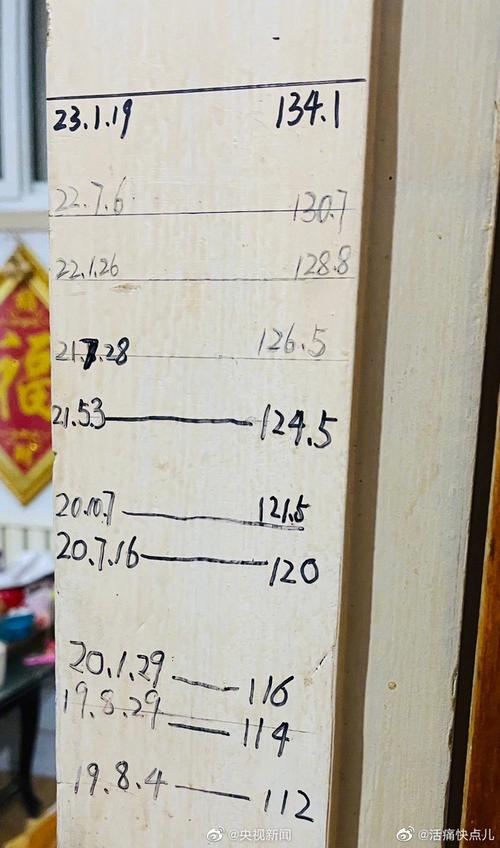 23.1.19 134.1
22.7.6 130.7
22.1.26 128.8
21.7.28 126.5
21.5.3 124.5
20.10.7 121.5
20.7.16 120
20.1.29 116
19.8.29 114
19.8.4 112
福
@央视新闻 @活痛快点儿